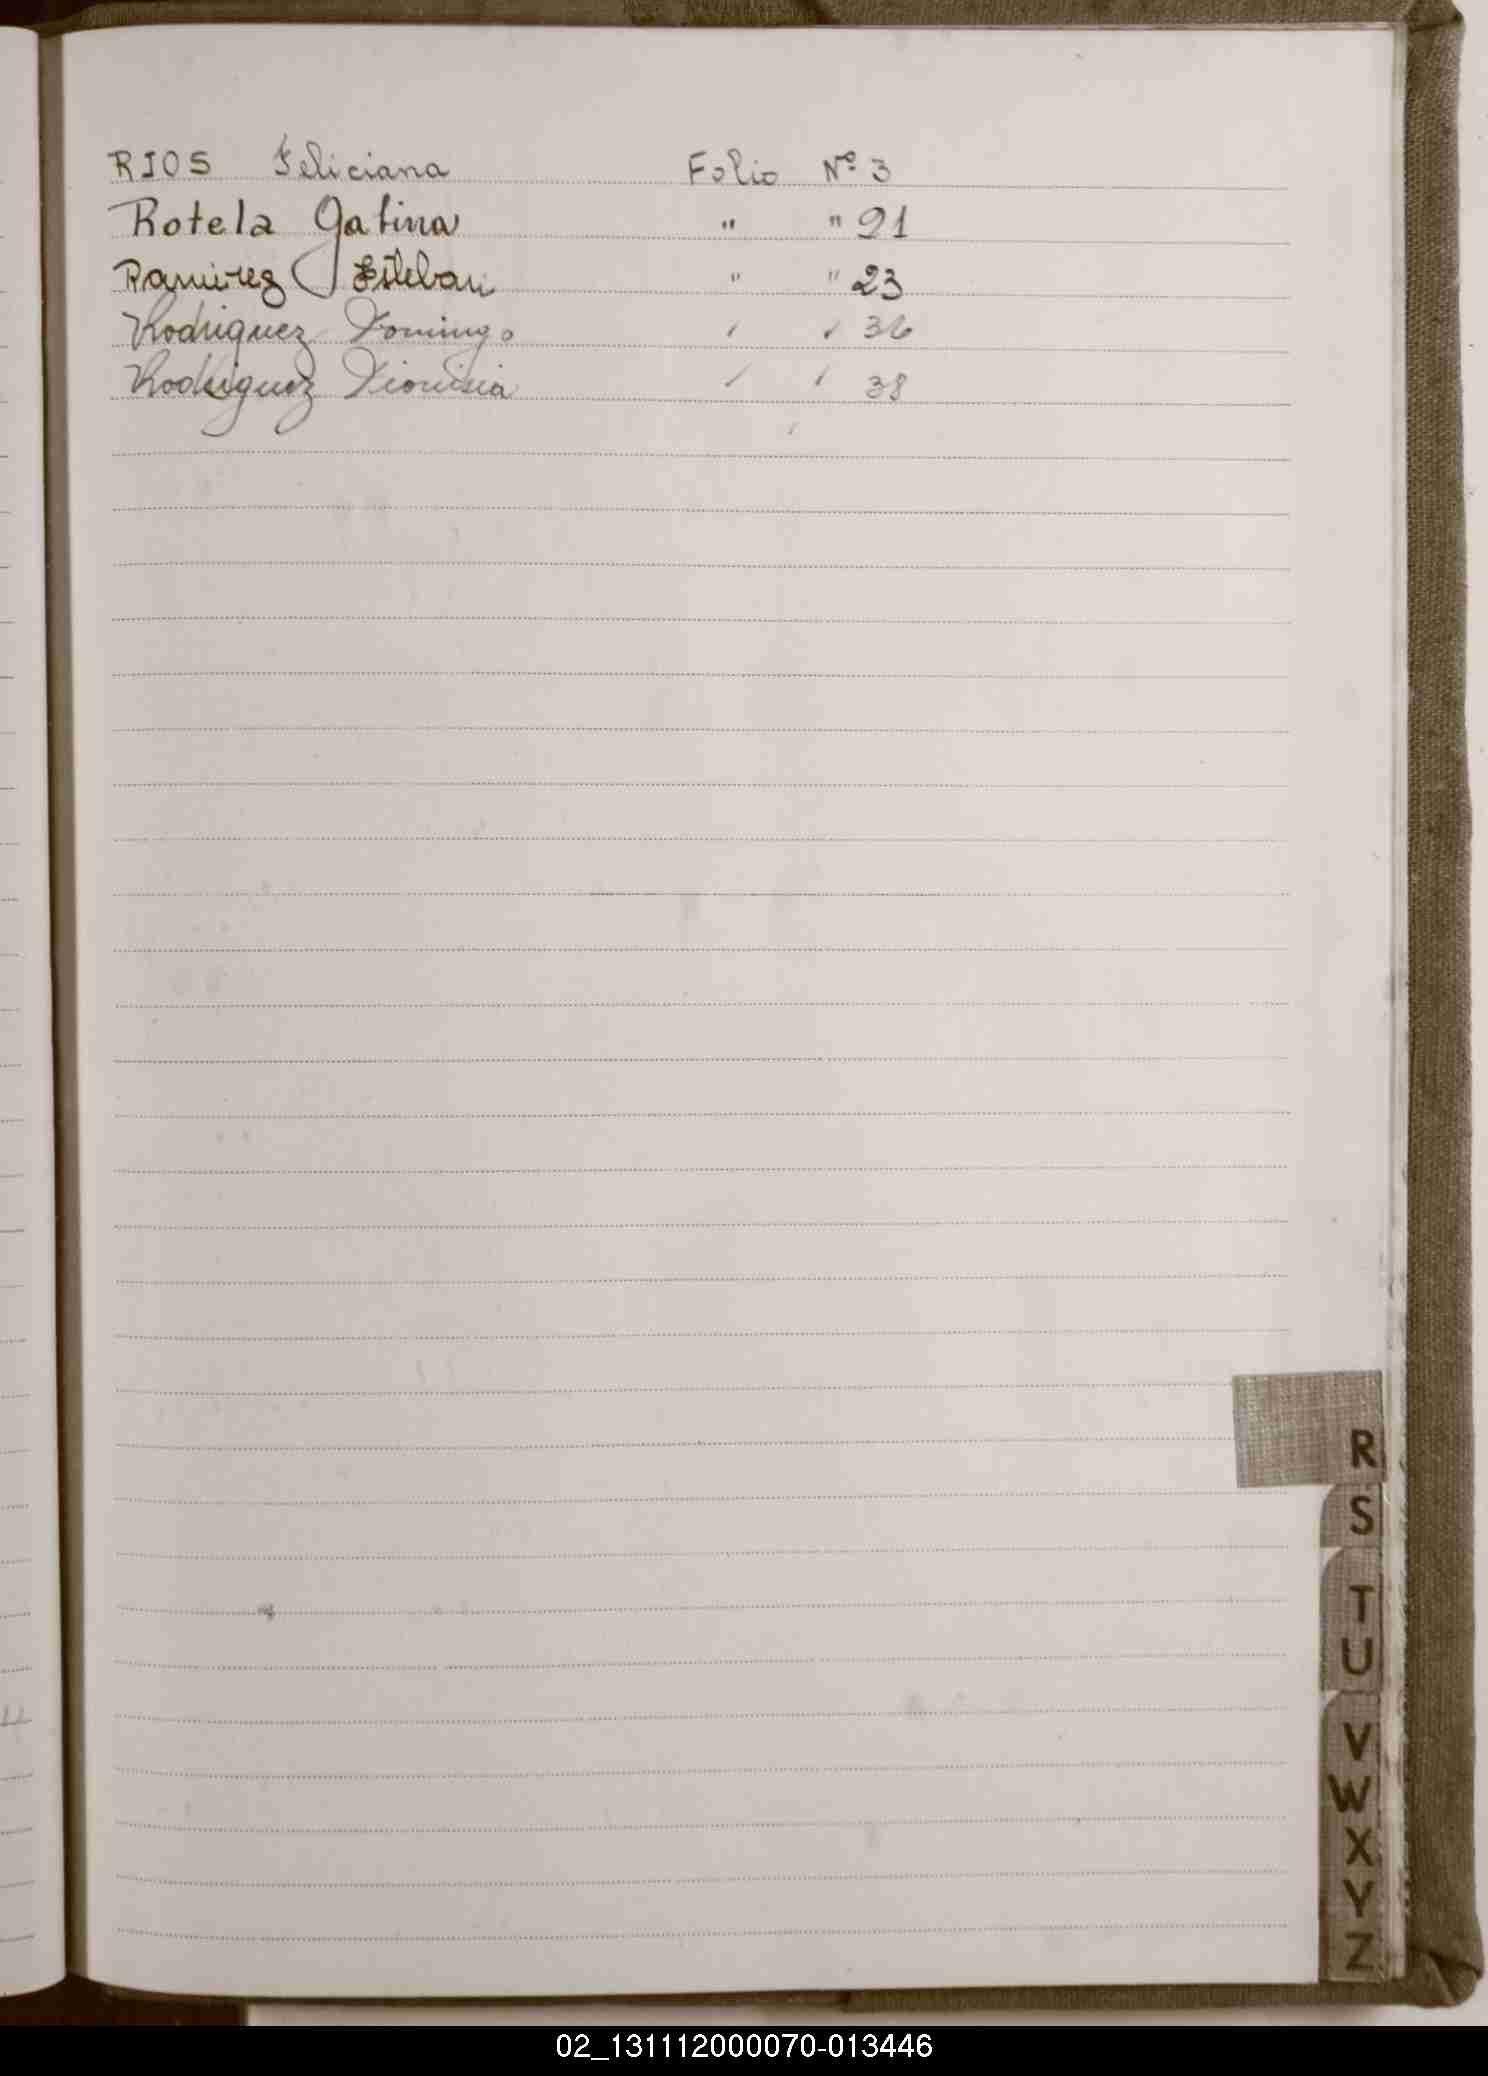 RIOS Feliciana Folio Nº 3
Rotela Gatina " " 21
Ramirez J Esteban " " 23
Rodriguez Domingo " " 36
Rodriguez Dionisia " " 38
R
S
T
U
V
W
X
Y
Z
02_131112000070-013446